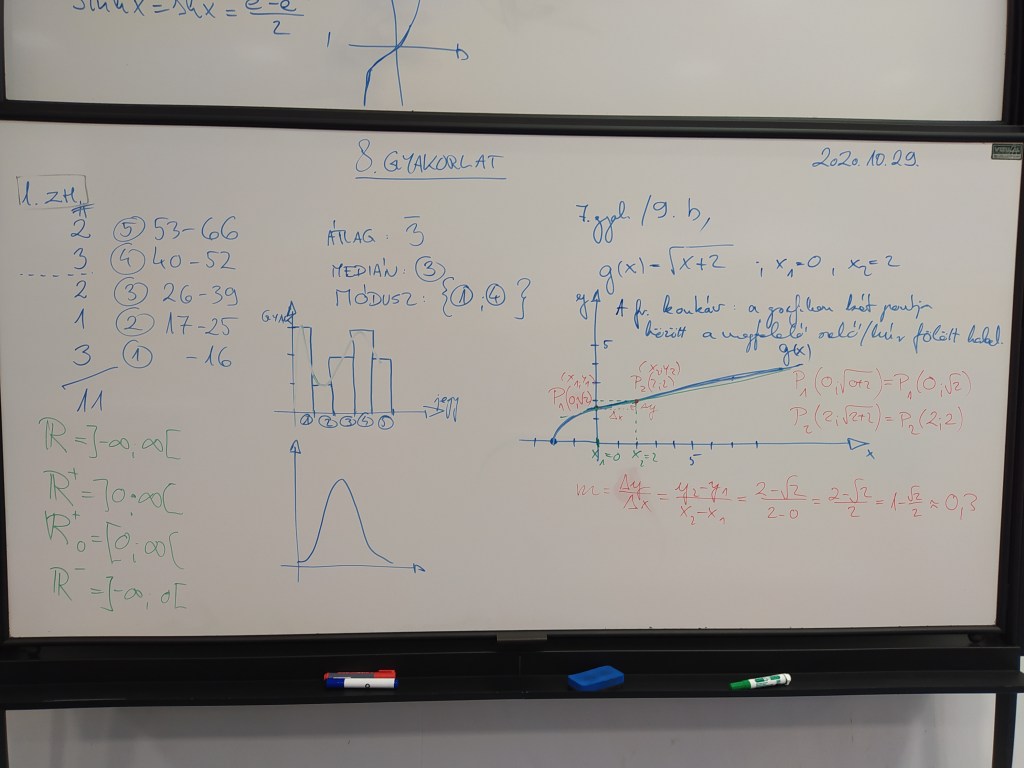 sinh x = sh x = e-e / 2
1
8. GYAKORLAT
2020.10.29.
1. ZH.
2 ⑤ 53-66
3 ④ 40-52
2 ③ 26-39
1 ② 17-25
3 ① -16
11
ÁTLAG : 3̅
MEDIÁN: ③
MÓDUSZ: {①, ④}
GYAK
① ② ③ ④ ⑤
jegy
ℝ = ]-∞, ∞[
ℝ⁺ = ]0; ∞[
ℝ⁺₀ = [0; ∞[
ℝ⁻ = ]-∞, 0[
7. gyak. /9. b,
g(x) = √(x+2) ; x₁=0, x₂=2
A fv. konkáv : a grafikon két pontja
között a megfelelő szelő/húr fölött halad.
y
5
g(x)
(x₁, y₁)
P₁(0, √2)
(x₂, y₂)
P₂(2; 2)
Δx
Δy
x₁=0
x₂=2
5
x
P₁(0, √(0+2)) = P₁(0, √2)
P₂(2; √(2+2)) = P₂(2; 2)
m = Δy/Δx = (y₂-y₁)/(x₂-x₁) = (2-√2)/(2-0) = (2-√2)/2 = 1-√2/2 ≈ 0,3